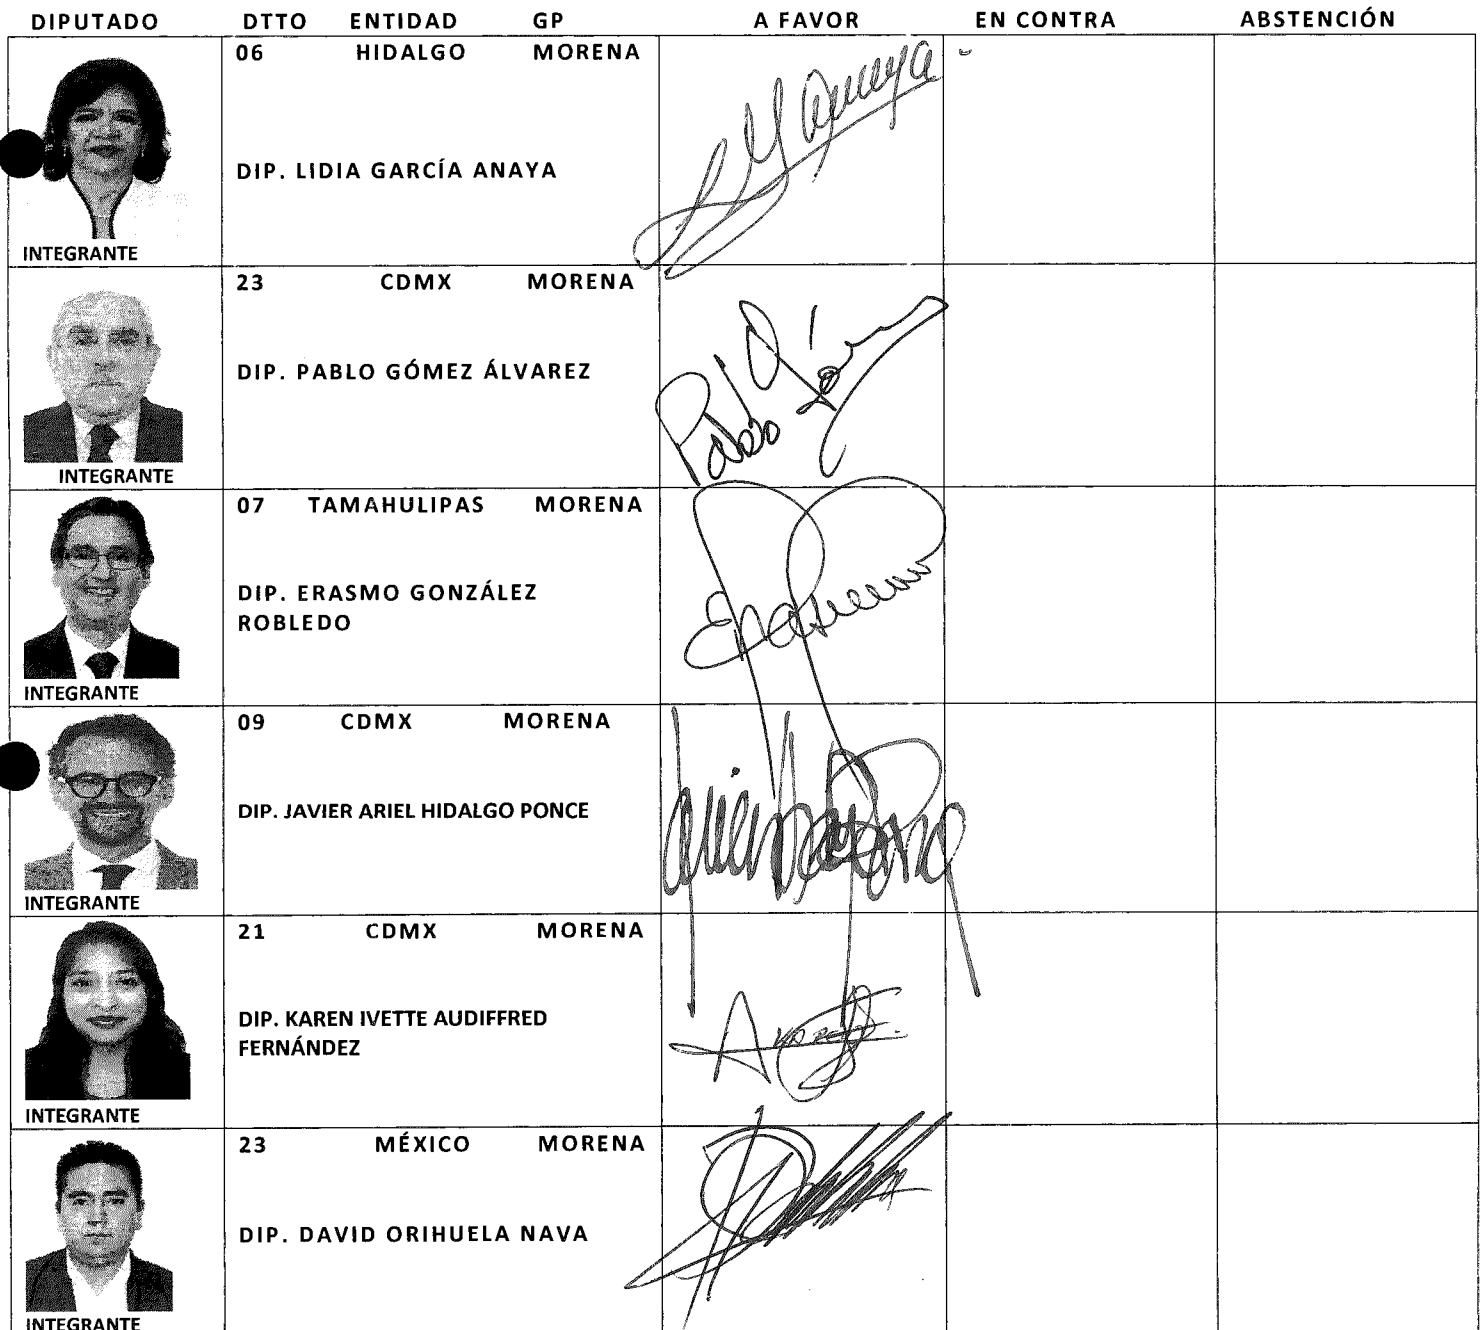 DIPUTADO DTTO ENTIDAD GP A FAVOR EN CONTRA ABSTENCIÓN
06 HIDALGO MORENA
DIP. LIDIA GARCÍA ANAYA
INTEGRANTE
23 CDMX MORENA
DIP. PABLO GÓMEZ ÁLVAREZ
Pablo Gómez
INTEGRANTE
07 TAMAHULIPAS MORENA
DIP. ERASMO GONZÁLEZ
ROBLEDO
Erasmo
INTEGRANTE
09 CDMX MORENA
DIP. JAVIER ARIEL HIDALGO PONCE
Javier
INTEGRANTE
21 CDMX MORENA
DIP. KAREN IVETTE AUDIFFRED
FERNÁNDEZ
INTEGRANTE
23 MÉXICO MORENA
DIP. DAVID ORIHUELA NAVA
INTEGRANTE